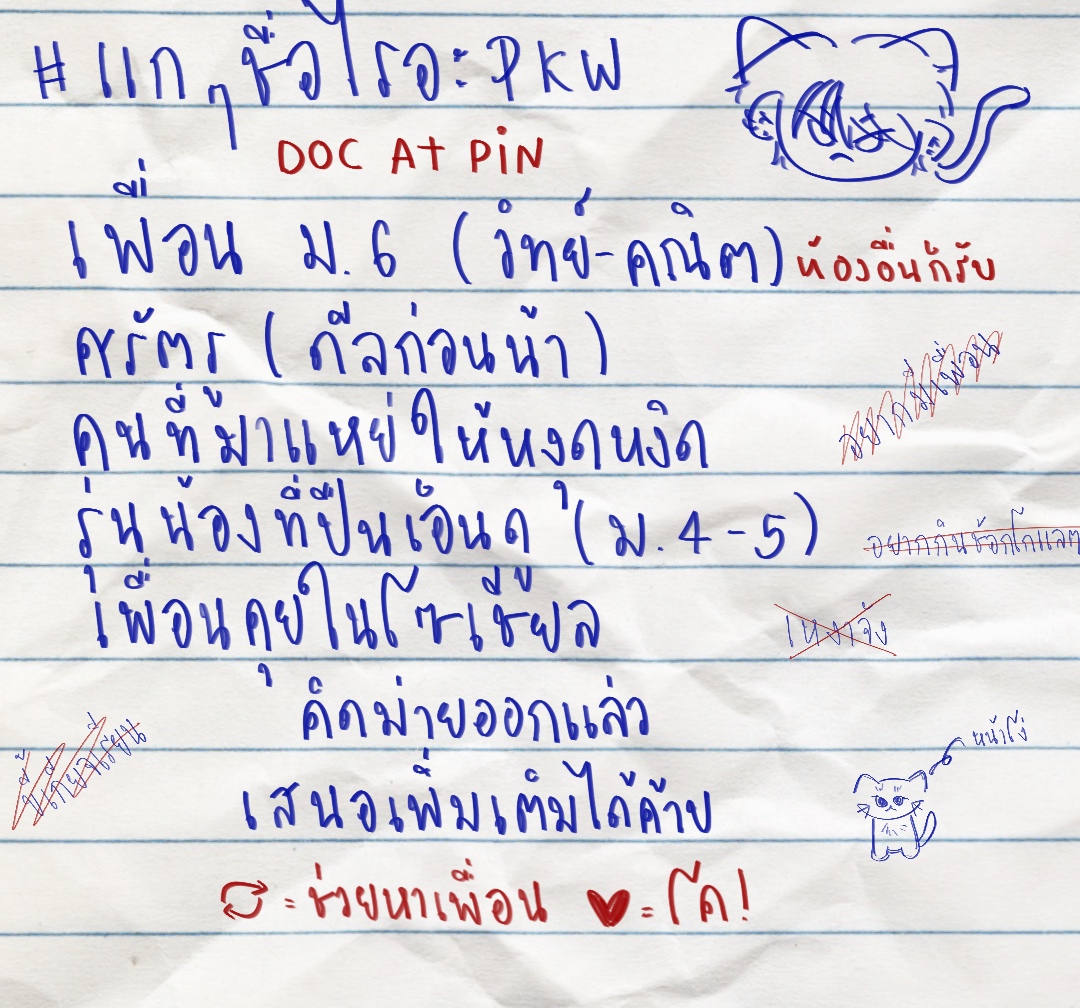 #แกๆชื่อไรอะ:PKW
DOC At PiN
เพื่อน ม.6 (วิทย์-คณิต) ห้องอื่นก้รับ
ศรัตรู (ดีลก่อนน้า)
คนที่ม้าแหย่ให้หงุดหงิด
อยากมีเพื่อน
รุ่นน้องที่ปืนเอ็นดู (ม.4-5)
อยากกินช้อกโกแลต
เพื่อนคุย์ในโซเชี่ยล
เหงาจัง
คิดม่ายออกแล่ว
ขี้เกียจเรียน
หน้าโง่
เสนอเพิ่มเติมได้ค้าบ
= ช่วยหาเพื่อน ♥ = โค!